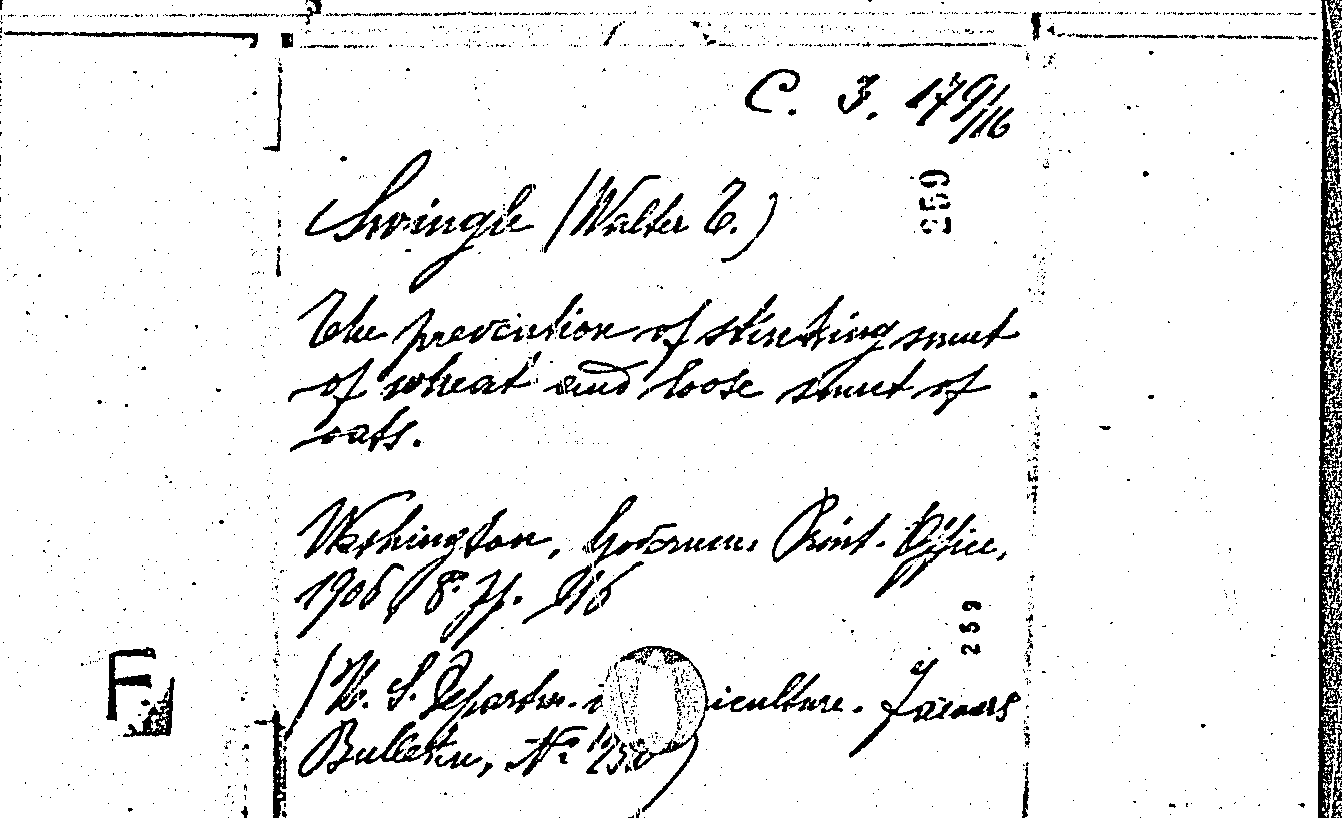 C. 3. 179/16
259
Swingle (Walter T.)
The prevention of stinking smut
of wheat and loose smut of
oats.
Washington, Governm. Print. Office,
1906, 8. pp. 16
259
(U. S. Departm. iculture. Farmers
Bulletin, No 250)
F